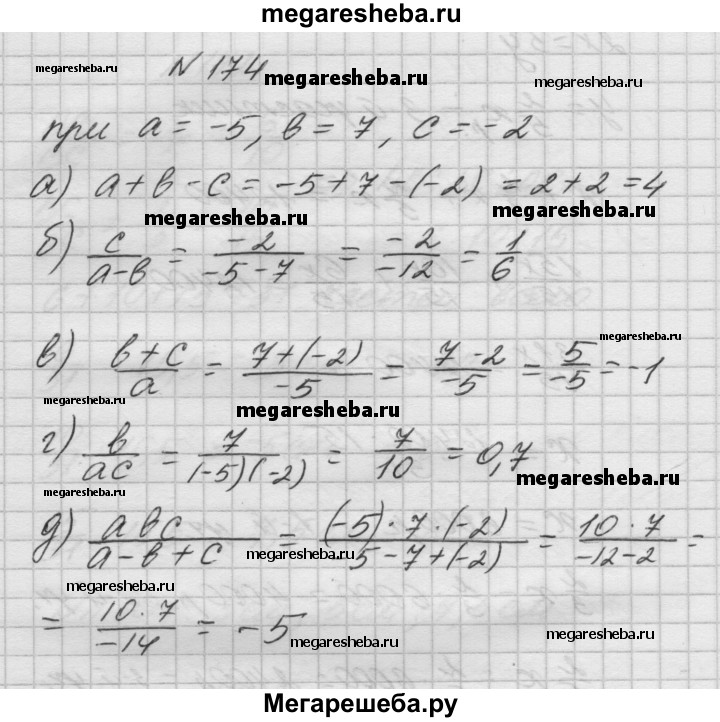 megaresheba.ru
N 174
megaresheba.ru megaresheba.ru megaresheba.ru
при a = -5, b = 7, c = -2
а) a + b - c = -5 + 7 - (-2) = 2 + 2 = 4
megaresheba.ru megaresheba.ru
б) c/(a-b) = -2/(-5-7) = -2/-12 = 1/6
megaresheba.ru
в) (b+c)/a = (7+(-2))/-5 = (7-2)/-5 = 5/-5 = -1
megaresheba.ru megaresheba.ru
г) b/(ac) = 7/((-5)(-2)) = 7/10 = 0,7
megaresheba.ru
megaresheba.ru
д) abc/(a-b+c) = ((-5)·7·(-2))/(-5-7+(-2)) = (10·7)/(-12-2) =
megaresheba.ru
megaresheba.ru
= (10·7)/-14 = -5
megaresheba.ru megaresheba.ru
Мегарешеба.ру